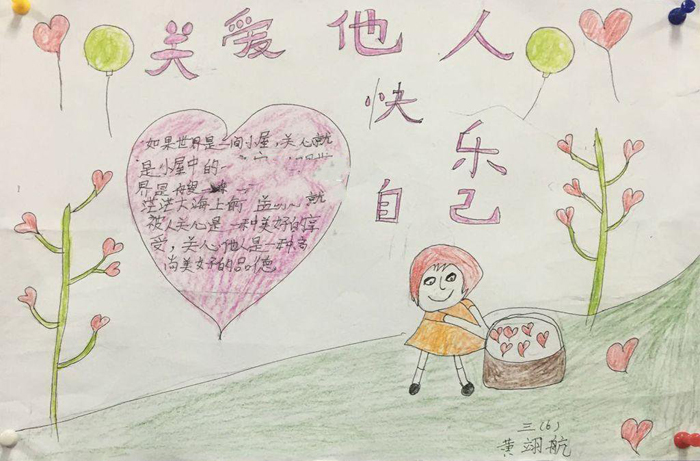 关爱他人
快
乐
自己
如果世界是一间小屋,关心就
是小屋中的一
界是
茫茫大海上 就
被人关心是一种美好的享
受,关心他人是一种高
尚美好的品德
三(6)
黄翊航